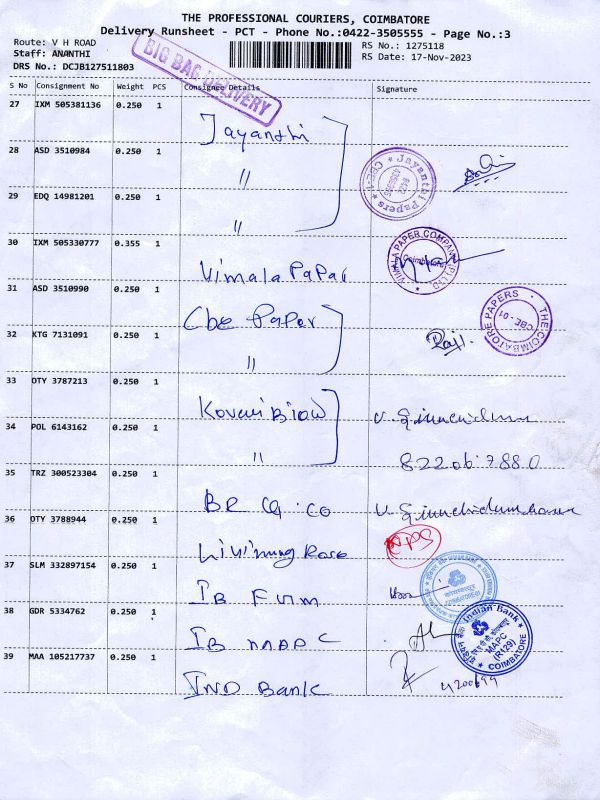 THE PROFESSIONAL COURIERS, COIMBATORE
Delivery Runsheet - PCT - Phone No.:0422-3505555 - Page No.:3
Route: V H ROAD
RS No.: 1275118
Staff: ANANTHI
RS Date: 17-Nov-2023
DRS No.: DCJB127511803
BIG BAG DELIVERY
S No Consignment No Weight PCS Consignee Details Signature
27 IXM 505381136 0.250 1 Jayanthi
28 ASD 3510984 0.250 1 〃
Jayanthi Papers
0422
CBE-1
29 EDQ 14981201 0.250 1 〃
30 IXM 505330777 0.355 1 Vimala Papar
VIMALA PAPER COMPANY (P) LTD.
Coimbatore
31 ASD 3510990 0.250 1 Cbe Paper
THE COIMBATORE PAPERS
CBE - 01
32 KTG 7131091 0.250 1 〃 Raji.
33 OTY 3787213 0.250 1
34 POL 6143162 0.250 1 〃
35 TRZ 300523304 0.250 1 BR G. Co
36 OTY 3788944 0.250 1
37 SLM 332897154 0.250 1 IB
38 GDR 5334762 1 IB MAPC
Indian Bank
MAPC
(R129)
COIMBATORE
39 MAA 105217737 0.250 1 IND Bank